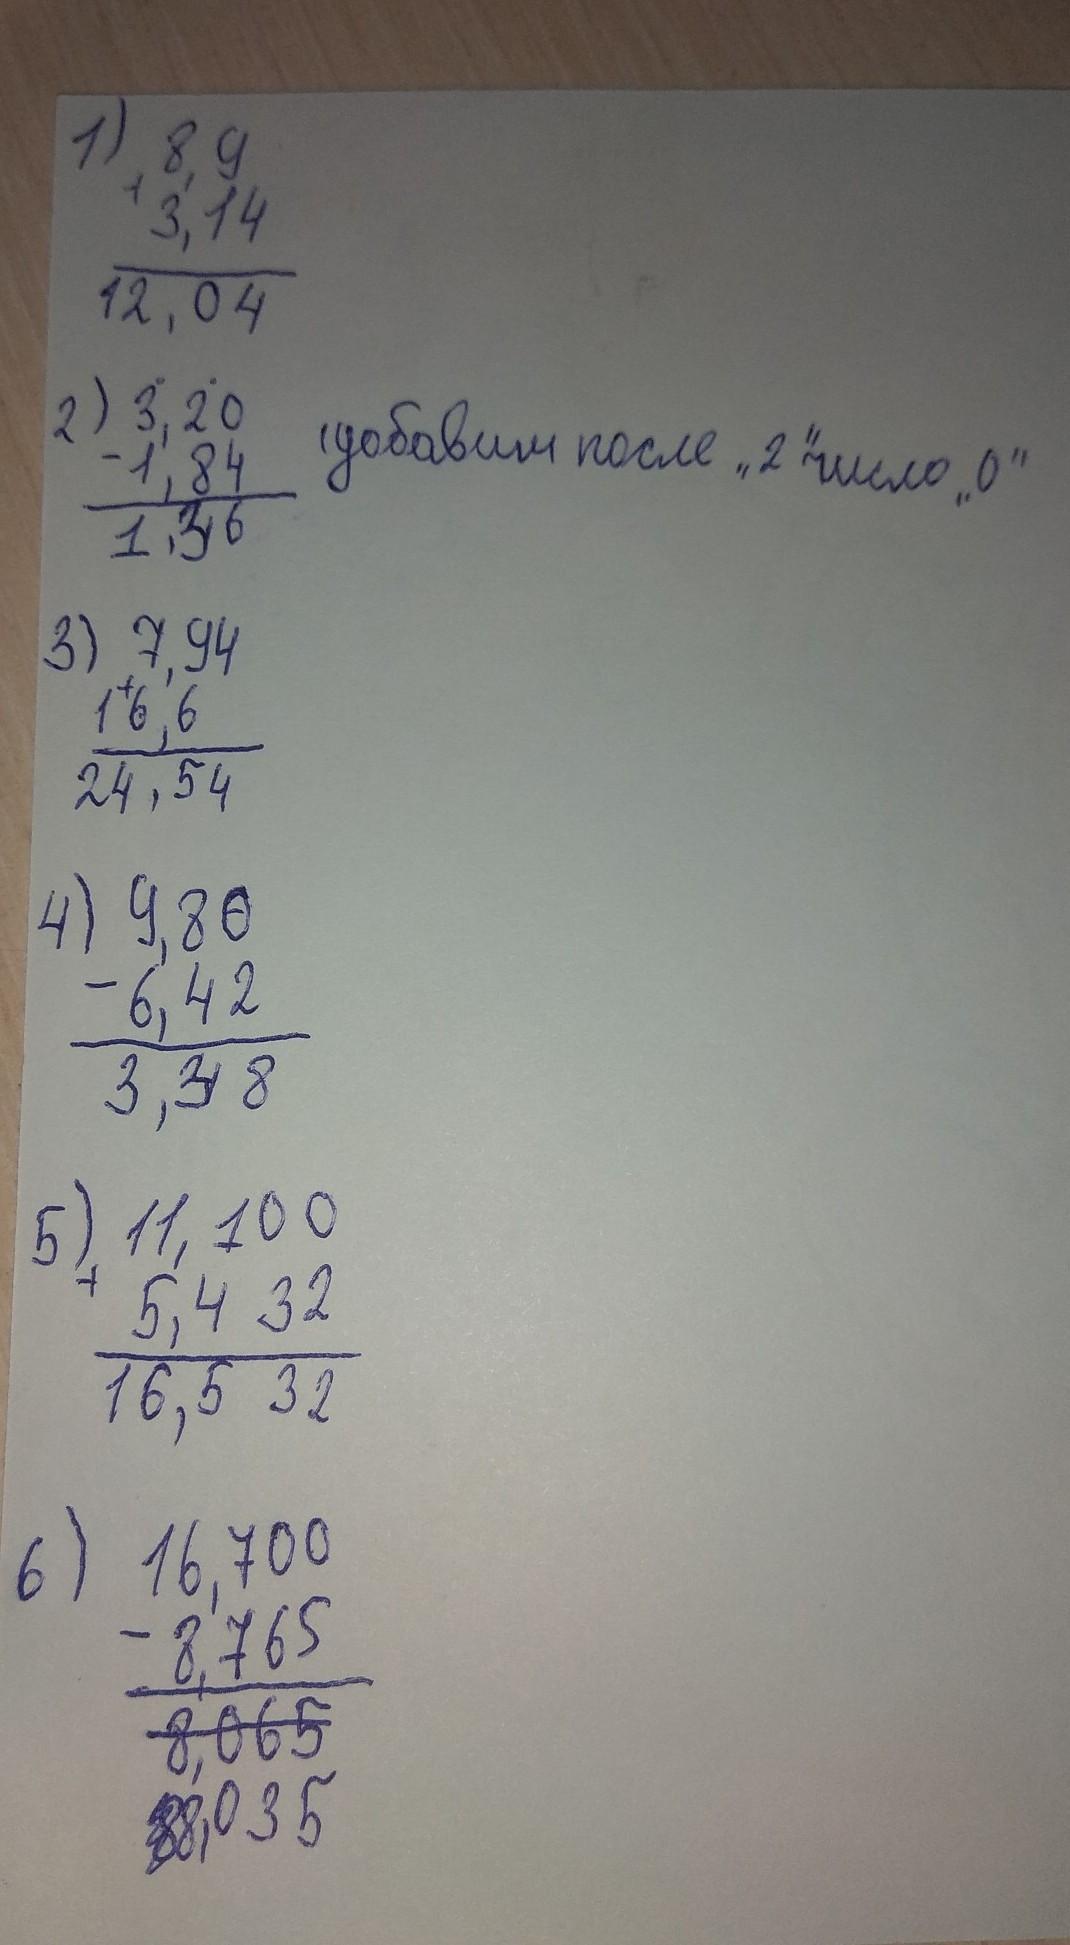 1) 8,9
+ 3,14
12,04
2) 3,20
- 1,84 добавим после „2" число „0"
1,36
3) 7,94
+ 16,6
24,54
4) 9,80
- 6,42
3,38
5) 11,100
+ 5,432
16,532
6) 16,700
- 8,765
8,065
8,035